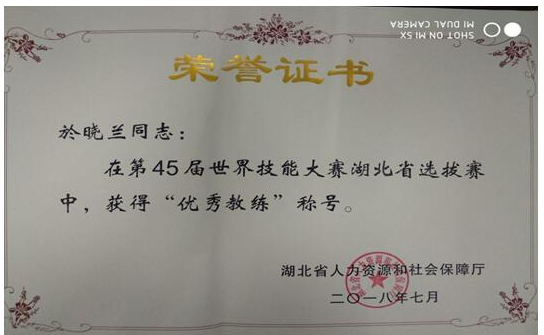 SHOT ON MI 5X
MI DUAL CAMERA
荣誉证书
於晓兰同志：
在第45届世界技能大赛湖北省选拔赛
中，获得“优秀教练”称号。
湖北省人力资源和社会保障厅
二〇一八年七月